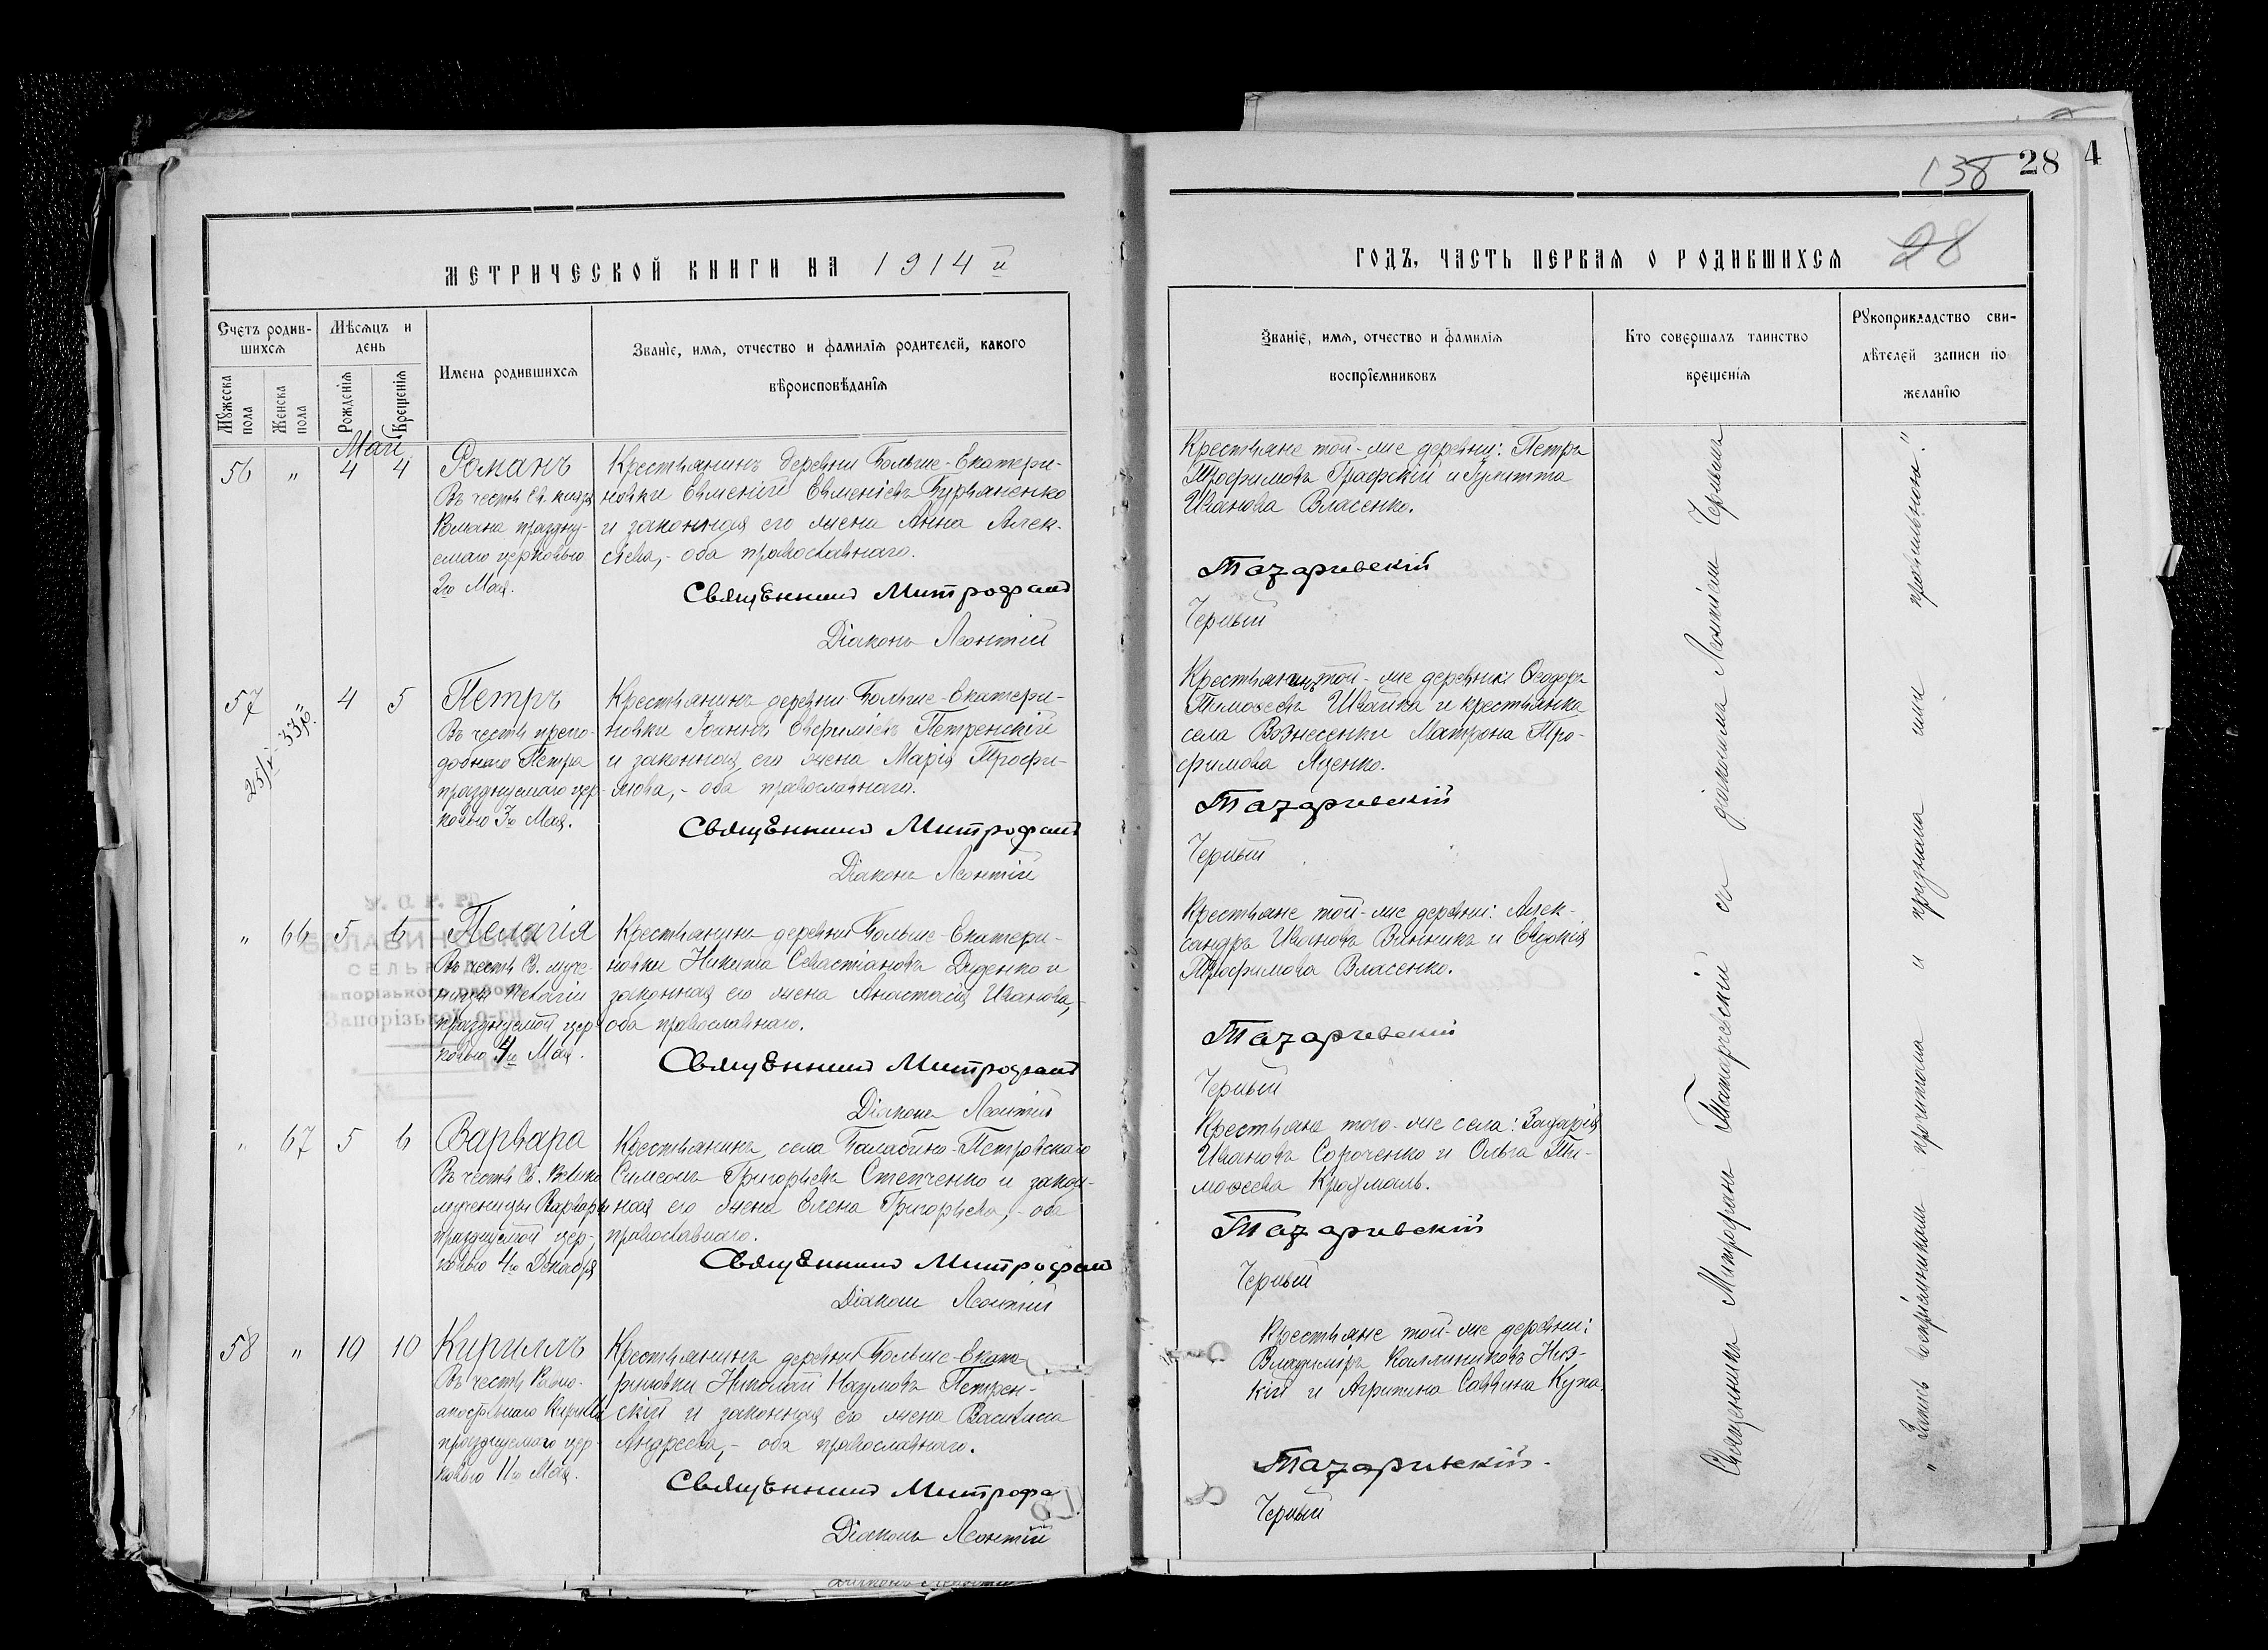 138 28 4
28
МЕТРИЧЕСКОЙ КНИГИ НА 1914 й
ГОДЪ, ЧАСТЬ ПЕРВАЯ О РОДИВШИХСЯ
Счетъ родив-
шихся
Мѣсяцъ и
день
Мужеска
пола
Женска
пола
Рожденія
Крещенія
Имена родившихся
Званіе, имя, отчество и фамилія родителей, какого
вѣроисповѣданія
Званіе, имя, отчество и фамилія
воспріемниковъ
Кто совершалъ таинство
крещенія
Рукоприкладство сви-
дѣтелей записи по
желанію
Май
56 " 4 4
Романъ
Въ честь Св. князя
Романа праздну-
емаго церковью
2го Мая.
Крестьянинъ деревни Больше-Екатери-
новки Евменій Евменіевъ Бурьяненко
и законная его жена Анна Алек-
сѣева, - оба православнаго.
Священникъ Митрофанъ
Діаконъ Леонтій
Крестьяне той-же деревни: Петръ
Трофимовъ Графскій и Іулитта
Иванова Власенко.
Татарчевскій
Черный
57 " 4 5
25/V 33р.
Петръ
Въ честь препо-
добнаго Петра
празднуемаго цер-
ковью 3го Мая.
Крестьянинъ деревни Больше-Екатери-
новки Іоаннъ Евфиміевъ Петренскій
и законная его жена Марія Трофи-
мова, - оба православнаго.
Священникъ Митрофанъ
Діаконъ Леонтій
Крестьянинъ той-же деревни: Ѳеодоръ
Тимоѳеевъ Швайка и крестьянка
села Вознесенки Матрона Тро-
фимова Яценко.
Татарчевскій
Черный
У. С. Р. Р.
БАЛАБИНО
СЕЛЬРАДА
Запорізького району
Запорізької о-ги
" 66 5 6
Пелагія
Въ честь Св. муче-
ницы Пелагіи
празднуемой цер-
ковью 4го Мая.
Крестьянинъ деревни Больше-Екатери-
новки Никита Севастіановъ Диденко и
законная его жена Анастасія Иванова, -
оба православнаго.
Священникъ Митрофанъ
Діаконъ Леонтій
Крестьяне той-же деревни: Алек-
сандръ Ивановъ Винникъ и Евдокія
Трофимова Власенко.
Татарчевскій
Черный
" 67 5 6
Варвара
Въ честь Св. Велико
мученицы Варвары
празднуемой цер-
ковью 4го Декабря
Крестьянинъ села Балабино-Петровскаго
Симеонъ Григорьевъ Степченко и закон-
ная его жена Елена Григорьева, - оба
православнаго.
Священникъ Митрофанъ
Діаконъ Леонтій
Крестьяне того-же села: Захарія
Ивановъ Сороченко и Ольга Ти-
моѳеева Крохмаль.
Татарчевскій
Черный
58 " 10 10
Кириллъ
Въ честь Равно-
апостольнаго Кирилла
празднуемаго цер-
ковью 11го Мая.
Крестьянинъ деревни Больше-Екате-
риновки Николай Наумовъ Петрен-
скій и законная его жена Василиса
Андреева, - оба православнаго.
Священникъ Митрофа
Діаконъ Леонтій
Крестьяне той-же деревни:
Владиміръ Каллиниковъ Низ-
кій и Агрипина Саввина Купа.
Татарчевскій.
Черный
Священникъ Митрофанъ Татарчевскій съ діакономъ Леонтіемъ Чернымъ
" Запись воспріемниками прочитана и признана ими правильною. "